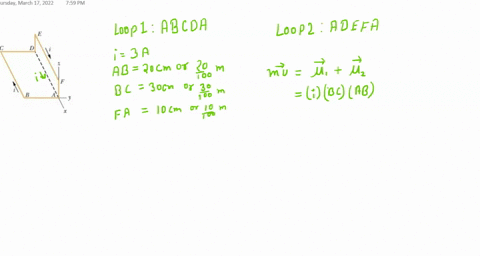 ursday, March 17, 2022 7:59 PM
Loop 1 : ABCDA
i = 3A
AB = 20cm or 20/100 m
BC = 30cm or 30/100 m
FA = 10cm or 10/100 m
Loop 2 : ADEFA
mv = μ₁ + μ₂
= (i)(BC)(AB)
E
C
D
i
z
i
i
F
B
A
y
x